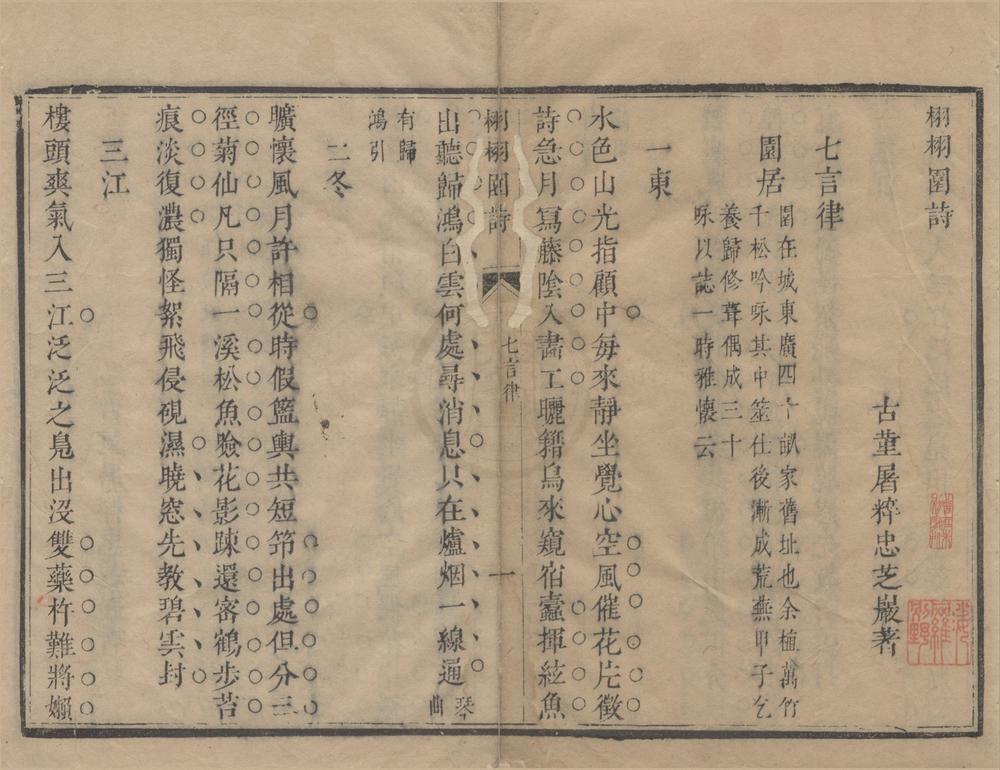 栩栩園詩
古菫屠粹忠芝巖著
七言律
園居
園在城東廣四十畝家舊址也余植萬竹
千松吟咏其中筮仕後漸成荒蕪甲子乞
養歸修葺偶成三十
咏以誌一時雅懷云
一東
水色山光指顧中每來靜坐覺心空風催花片徵
詩急月寫藤陰入畫工曬籍烏來窺宿蠹揮絃魚
栩栩園詩
七言律
一
出聽歸鴻白雲何處尋消息只在爐烟一線通
琴曲
有歸
鴻引
二冬
曠懷風月許相從時假籃輿共短笻出處但分三
徑菊仙凡只隔一溪松魚瞼花影踈還密鶴步苔
痕淡復濃獨怪絮飛侵硯濕曉窓先教碧雲封
三江
樓頭爽氣入三江泛泛之鳧出沒雙藥杵難將嬾